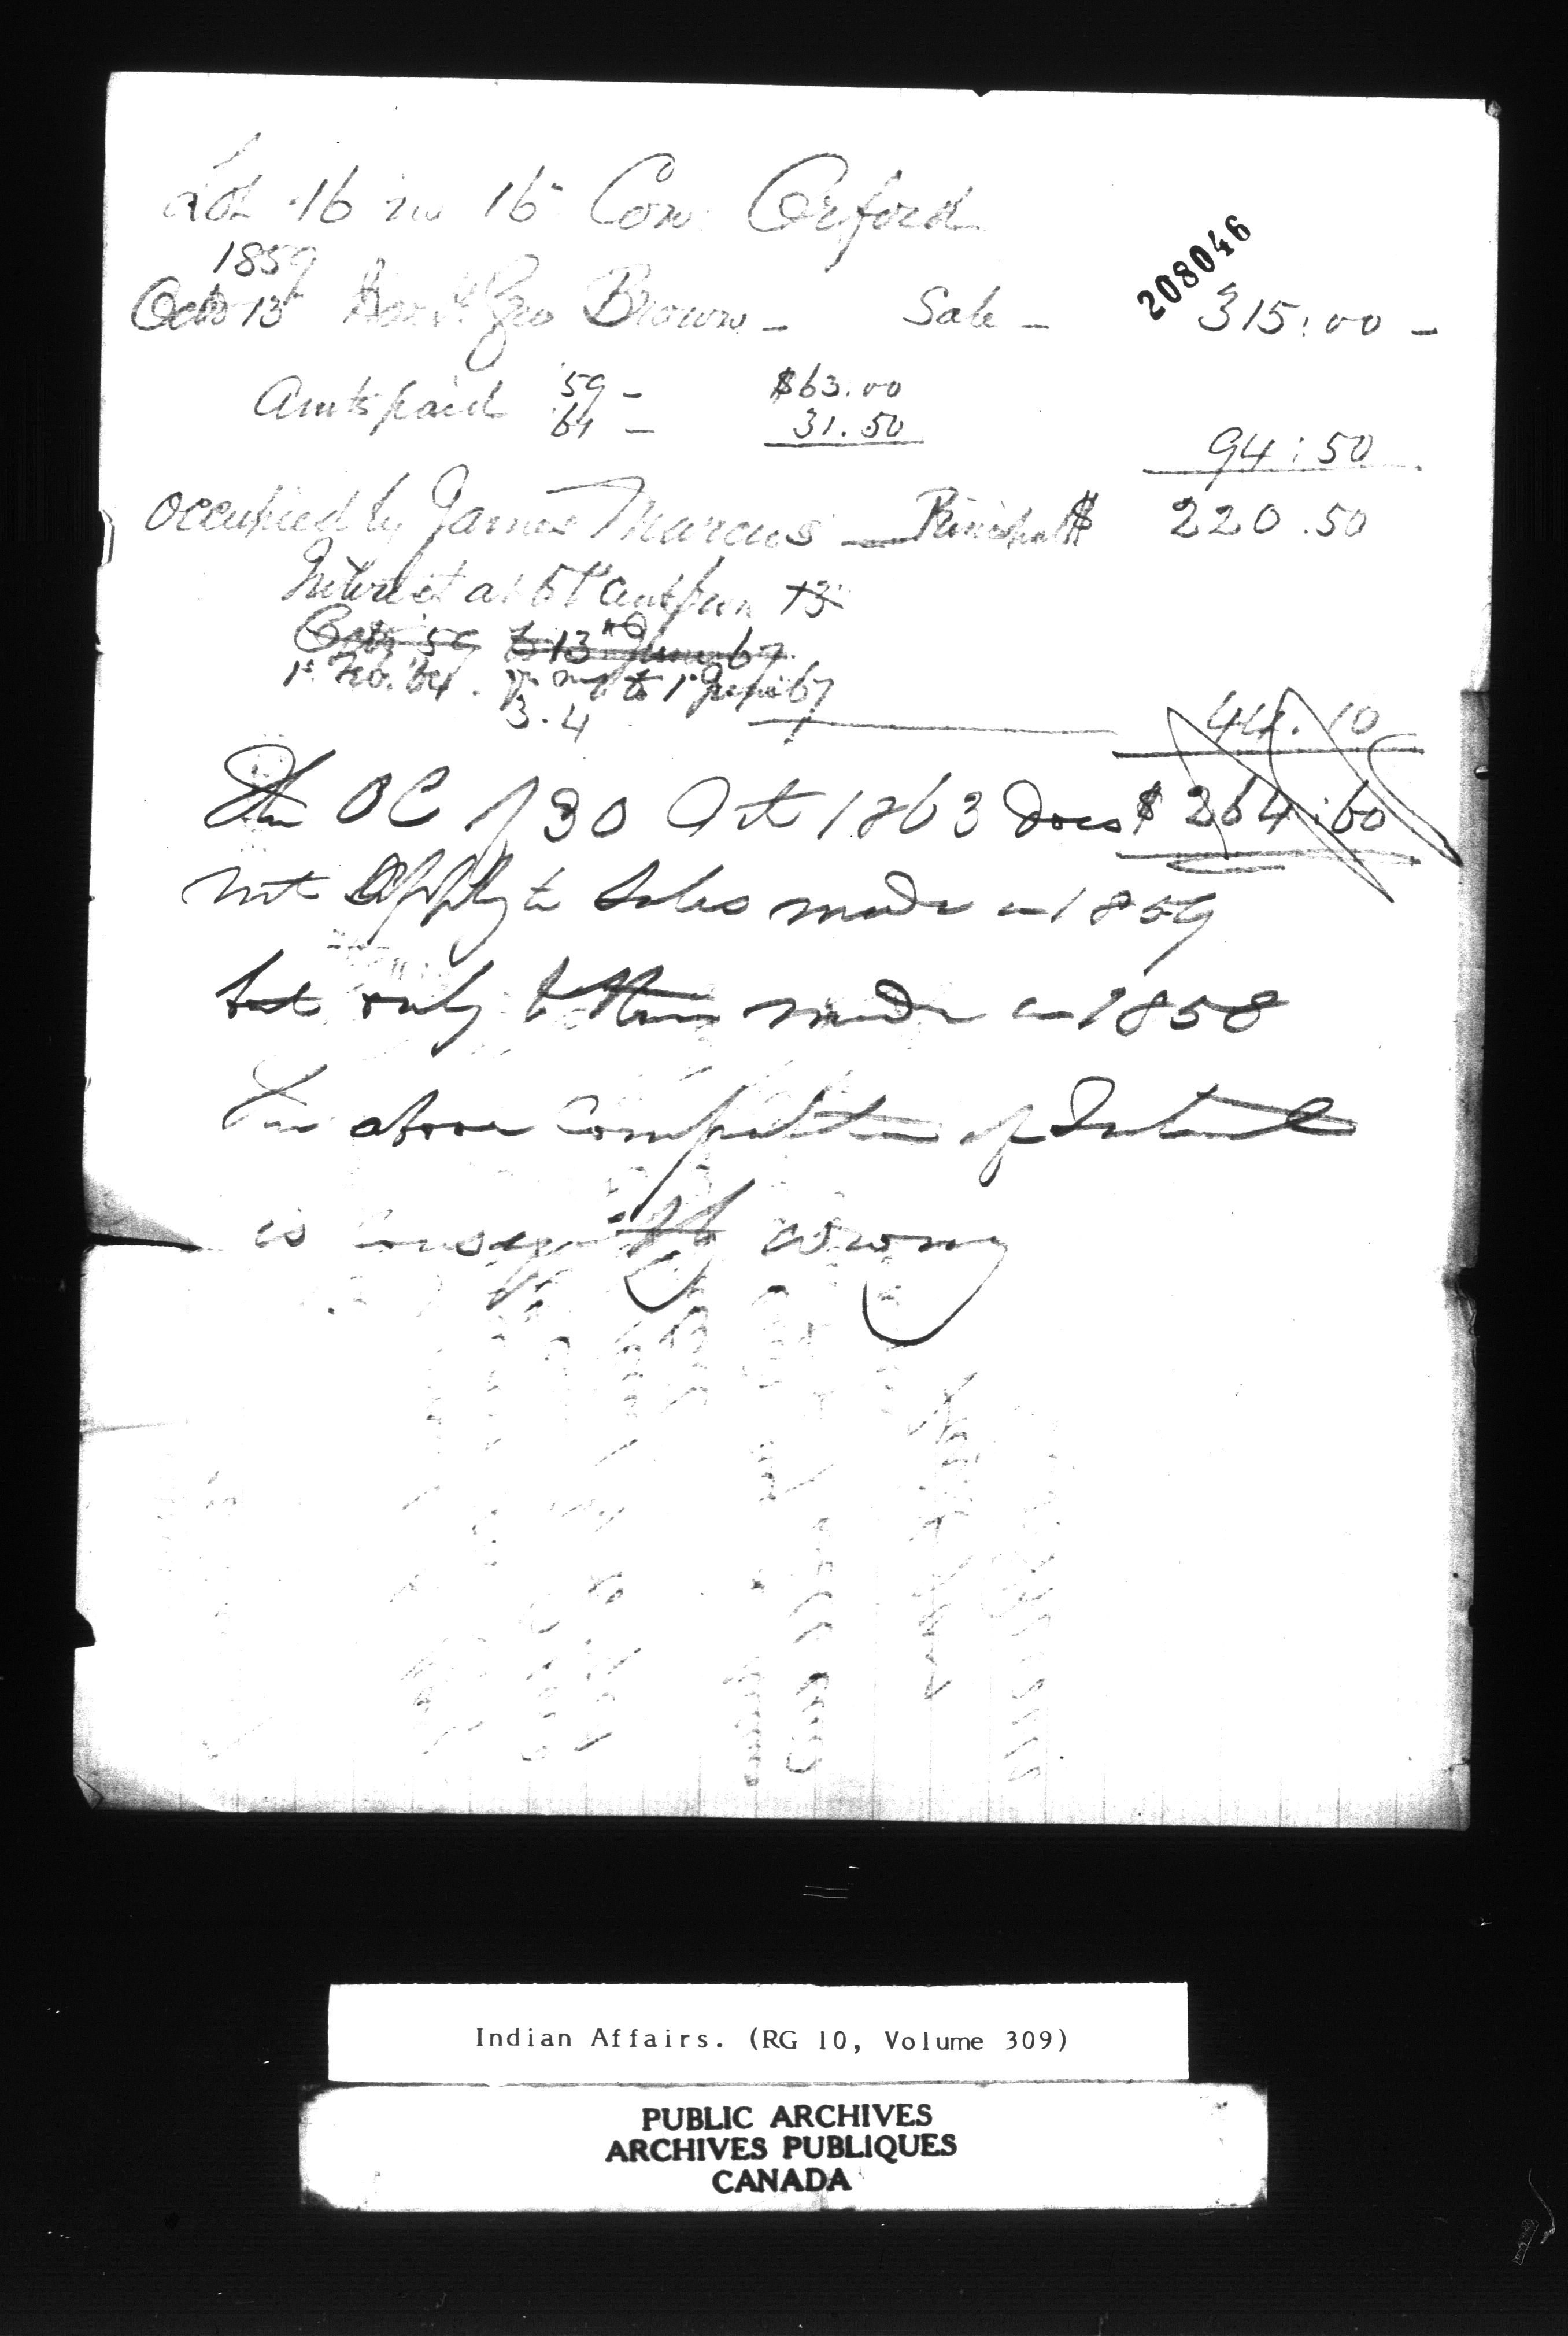 Lot 16 in 15 Con Orford
208046
1859
Octo 13 Honble Geo Brown - Sale - 315:00 -
Amts paid '59 - $63.00
'61 - 31.50
94:50
Occupied by James Marcus - Principal $ 220.50
Interest at 6 pr cent from 13
Octo 59 to 13th June 67
1st Feb. '64. to 1st June 67
3.4
44.10
$ 264:60
The OC of 30 Oct 1863 does
not apply to sales made in 1859
but only to those made in 1858
The above computation of Interest
is consequently wrong
Indian Affairs. (RG 10, Volume 309)
PUBLIC ARCHIVES
ARCHIVES PUBLIQUES
CANADA